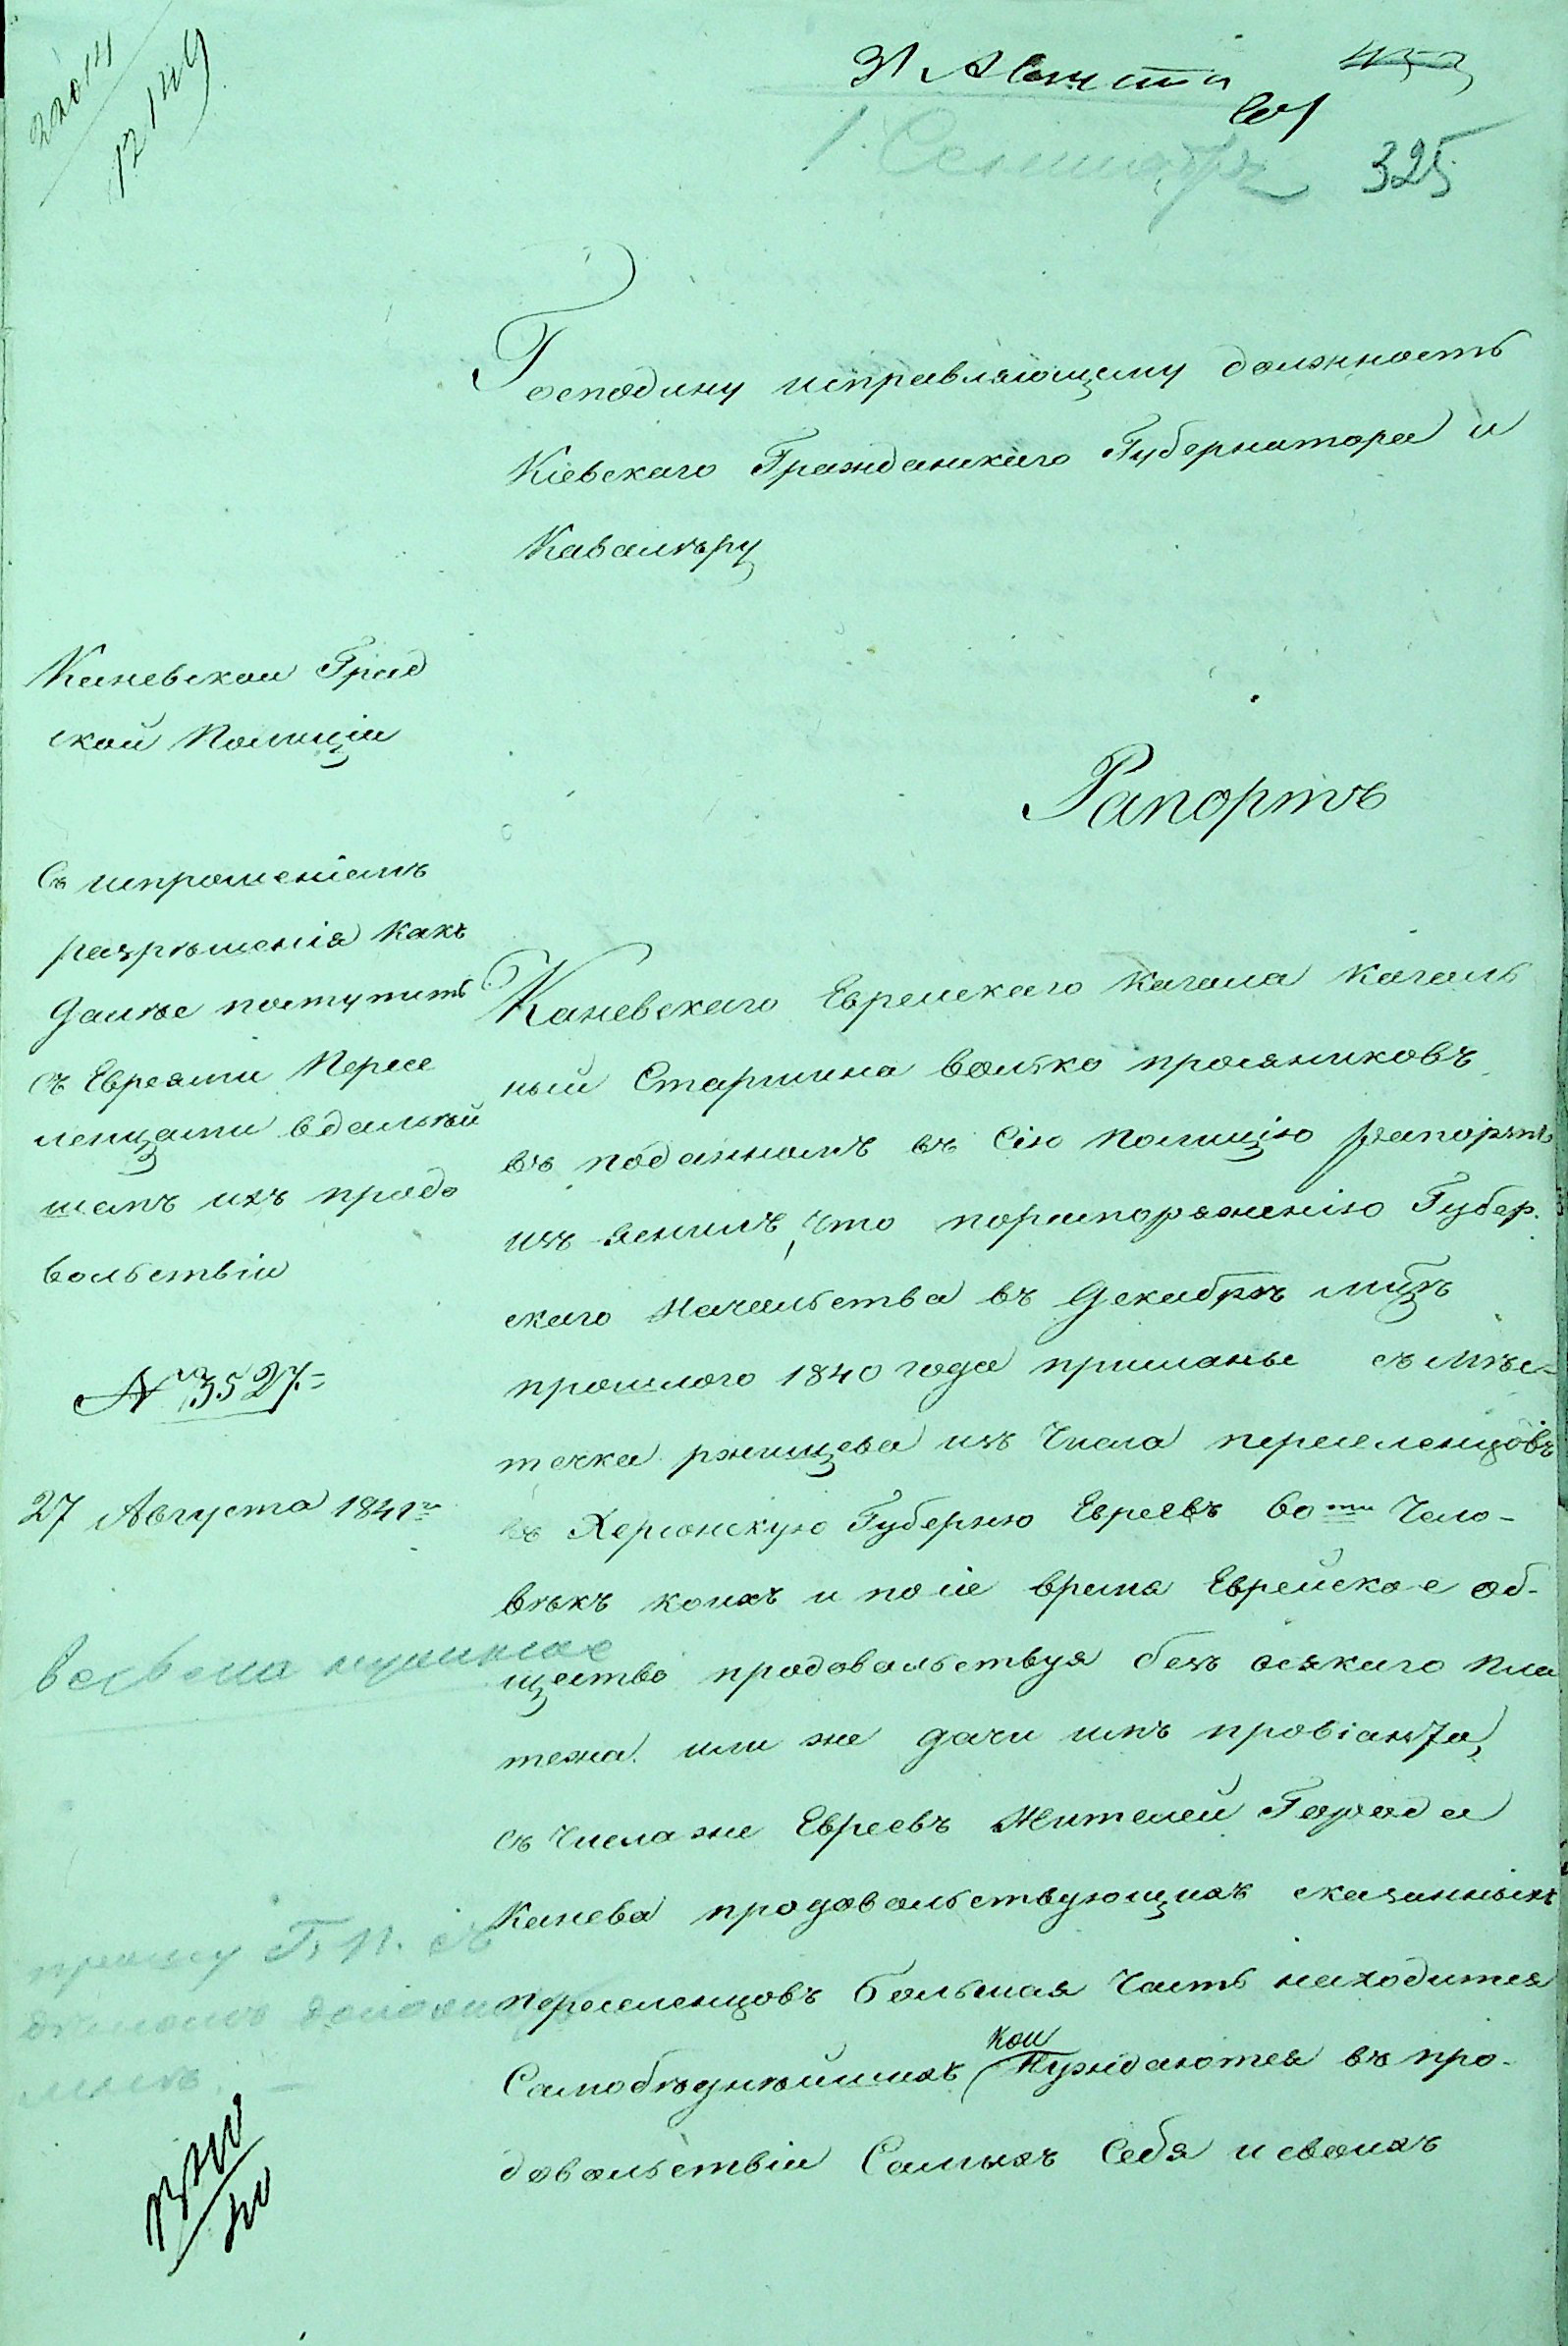 31 Августа
1. Сентября 325
Господину исправляющему должность
Кіевскаго Гражданскаго Губернатора и
Кавалѣру
Каневской Град
ской Полиціи
Рапортъ
Съ испрошеніемъ
разрѣшенія какъ
далѣе поступить
съ Евреями Пересе
ленцами вдальнѣй
шемъ ихъ продо
вольствіи
№ 3527.=
27 Августа 1841го
Каневскаго Еврейскаго Кагала Кагаль
ный Старшина Волько просяниковъ
въ поданномъ въ Сію Полицію рапортѣ
изъяснилъ, что пораспоряженію Губер.
скаго Начальства въ Декабрѣ мцѣ
прошлого 1840 года присланые съ Мѣс-
течка ржищева изъ Числа переселенцовъ
въ Херсонскую Губернію Евреевъ 60ти Чело-
вѣкъ коихъ и по сіе время Еврейское об-
щество продовольствуя безъ всякаго пла
тежа или же дачи имъ провіанта,
съ Числа же Евреевъ Жителей Города
Канева продовольствующихъ сказанныхъ
переселенцовъ большая Часть находится
Самобѣднѣйшихъ кои Нуждаются въ про-
довольствіи Самыхъ Себя и своихъ